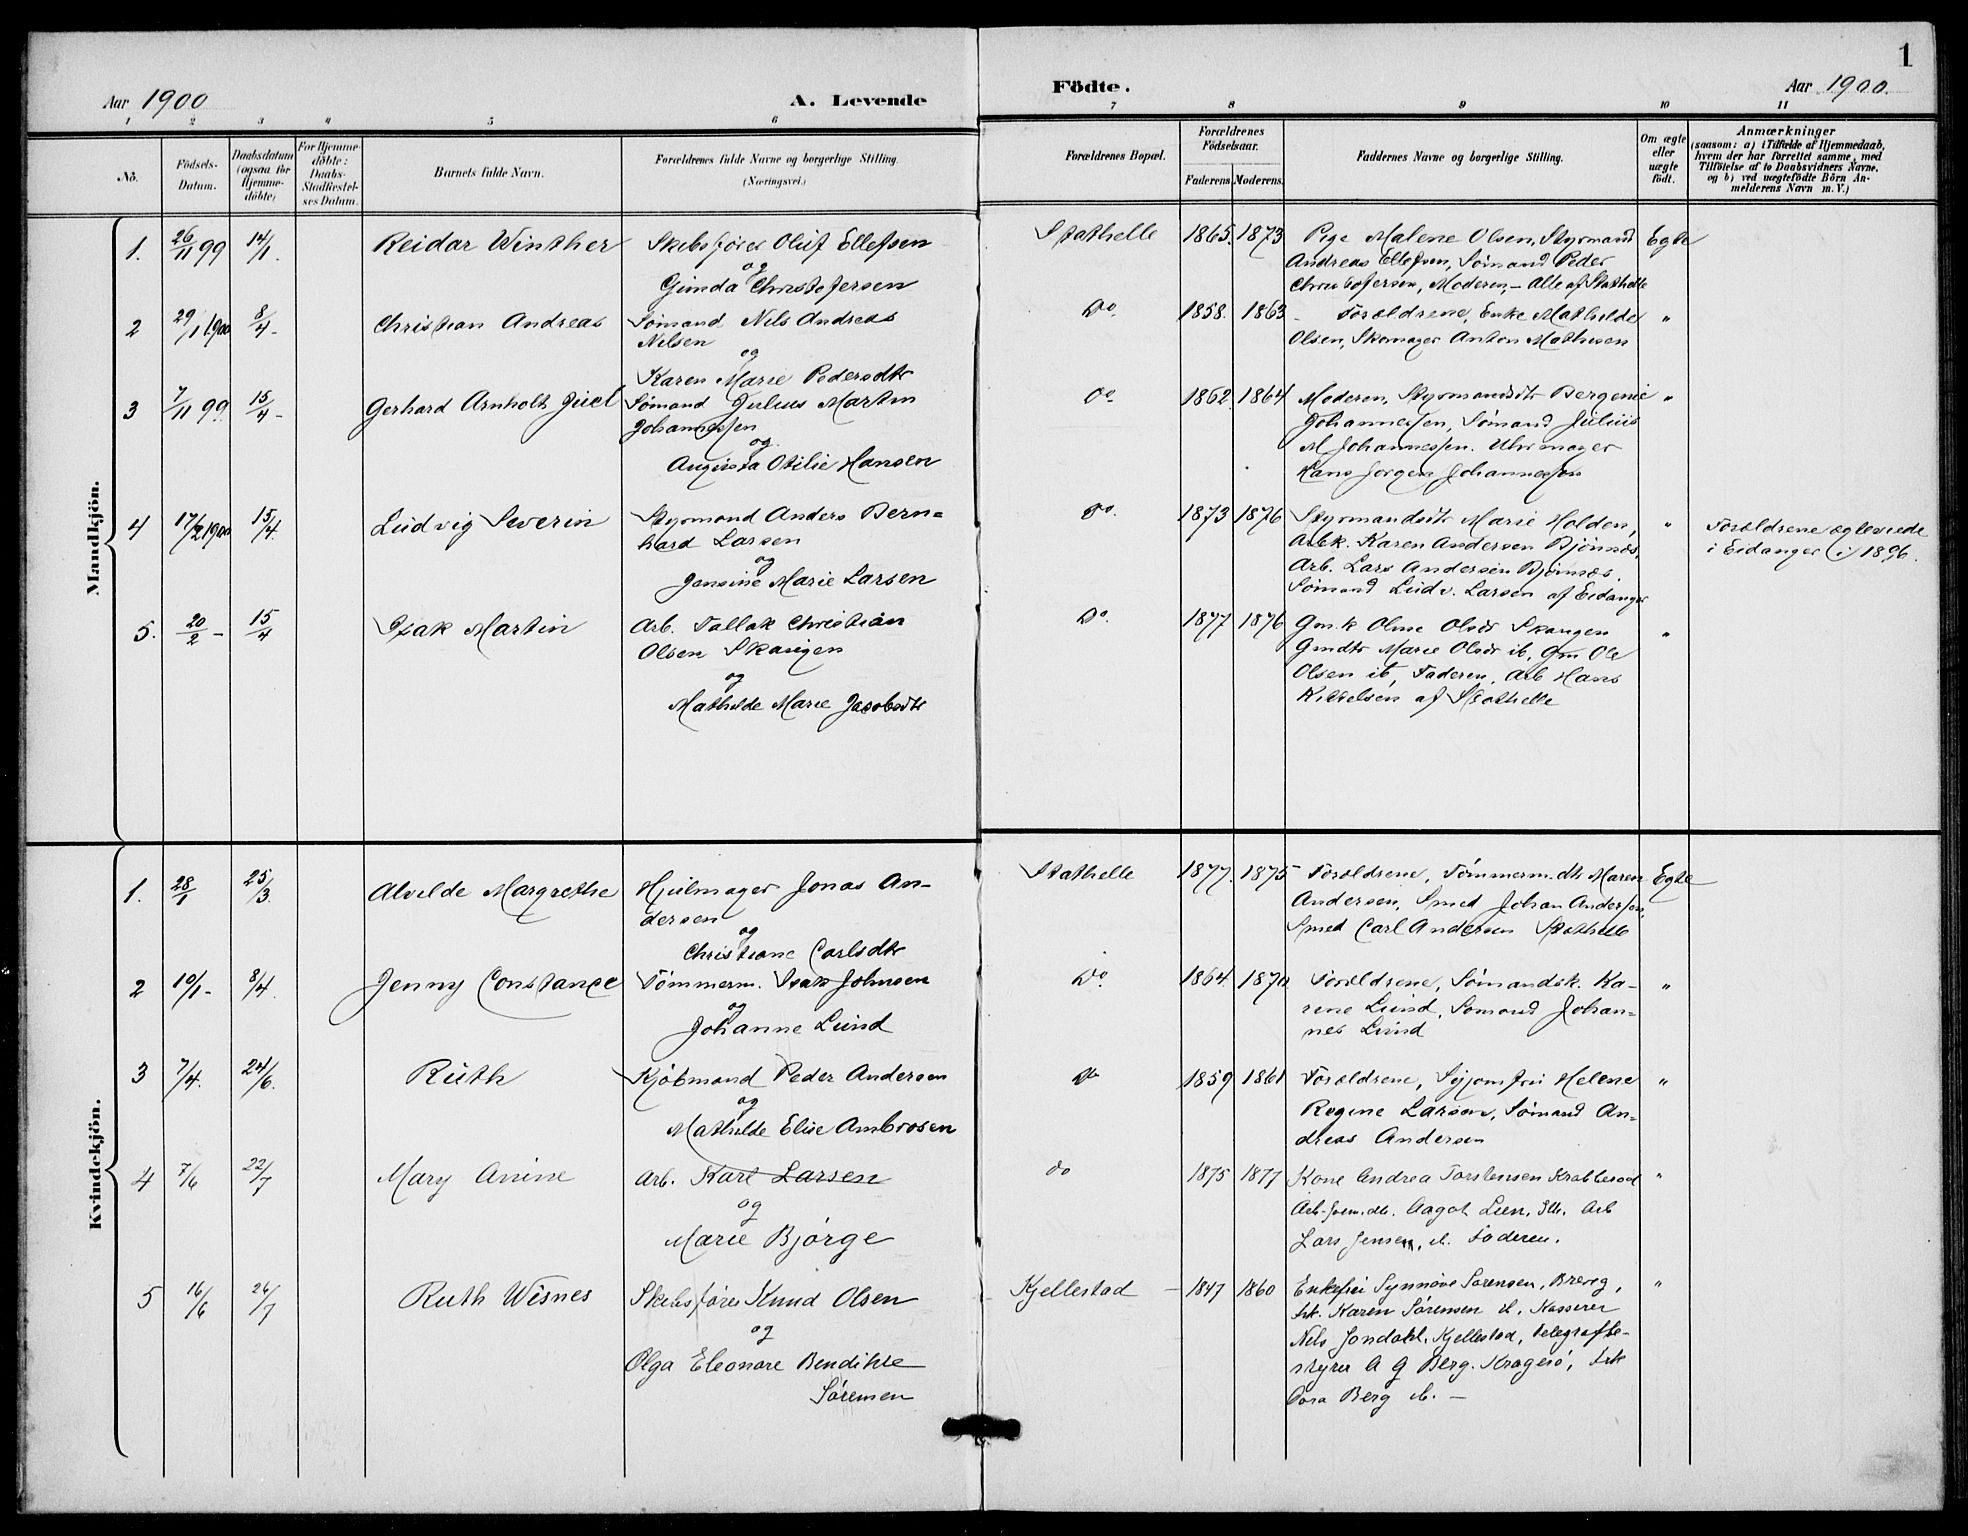 1
Aar 1900
A. Levende
Födte.
Aar 1900.
1 2 3 4 5 6 7 8 9 10 11
No.
Födsels-
Datum.
Daabsdatum
(ogsaa for
Hjemme-
döbte)
For Hjemme-
döbte:
Daabs-
Stadfæstel-
ses Datum.
Barnets fulde Navn.
Forældrenes fulde Navne og borgerlige Stilling.
(Næringsvei.)
Forældrenes Bopæl.
Forældrenes
Födselsaar.
Faderens Moderens.
Faddernes Navne og borgerlige Stilling.
Om ægte
eller
uægte
födt.
Anmærkninger
(saasom: a) i Tilfælde af Hjemmedaab,
hvem der har forrettet samme, med
Tilföielse af to Daabsvidners Navne,
og b) ved uægtefödte Börn An-
melderens Navn m. V.)
Mandkjön.
1. 26/11 99 14/1. Reidar Winther
Skibsfører Oluf Ellefsen
og
Gunda Christofersen
Stathelle 1865. 1873
Pige Malene Olsen, Styrmand
Andreas Ellefsen, Sømand Peder
Christofersen, Moderen, – Alle af Stathelle
Egte
2 29/1 1900 8/4 - Christian Andreas
Sømand Nils Andreas
Nilsen
og
Karen Marie Pedersdtr
Do. 1858. 1863
Forældrene, Enke Mathilde
Olsen, Skomager Anton Mathisen
"
3 7/11 99 15/4 - Gerhard Arnholt Juel
Sømand Julius Martin
Johannessen
og
Augusta Otilie Hansen
Do. 1862. 1864
Moderen, Styrmandsdtr Bergenie
Johannessen, Sømand Julius
M Johannessen. Uhrmager
Hans Jørgen Johannessen
"
4 17/2 1900 15/4. Ludvig Severin
Styrmand Anders Bern=
hard Larsen
og
Jensine Marie Larsen
Do. 1873 1876
Styrmandsdtr Marie Holden,
Arbk. Karen Andersen Bjønnæs,
Arb. Lars Andersen Bjønnæs.
Sømand Ludv. Larsen af Eidanger
"
Forældrene egteviede
i Eidanger i 1896.
5. 20/2 - 15/4 Isak Martin
Arb. Tallak Christian
Olsen Skaugen
og
Mathilde Marie Jacobsdtr
Do. 1877 1876
Gm.k Oline Olsdr Skaugen
Gmdtr Marie Olsdr ib, Gm Ole
Olsen ib, Faderen, Arb Hans
Kittelsen af Stathelle
"
Kvindekjön.
1. 28/1 25/3. Alvilde Margrethe
Hjulmager Jonas An-
dersen
og
Christiane Carlsdtr
Stathelle 1877. 1875
Forældrene, Tømmerm. dtr Maren
Andersen, Smed Johan Andersen,
Smed Carl Andersen Stathelle
Egte
2 10/1 - 8/4. Jenny Constance
Tømmerm. Isak Johnsen
og
Johanne Lund
Do. 1864 1870
Forældrene, Sømandsk. Ka-
rine Lund, Sømand Johan=
nes Lund
"
3 7/4. 24/6. Ruth
Kjøbmand Peder Andersen
og
Mathilde Elise Ambrosen
Do 1859 1861
Forældrene, Syjomfru Helene
Regine Larsen, Sømand An=
dreas Andersen
"
4 7/6 22/7 Mary Anine
Arb. Karl Larsen
og
Marie Bjørge
do 1875 1877
Kone Andrea Torstensen Krabberød
Aagot Lien, Sth. Arb
Lars Jensen, ib. Faderen.
"
5 16/6 26/7 Ruth Wisnes
Skibsfører Knud Olsen
og
Olga Eleonore Bendikte
Sørensen
Kjellestad – 1847 1860
Enkefru Synnøve Sørensen, Brevig,
Frk. Karen Sørensen ib. Kasserer
Nils Jondahl, Kjellestad, Telegrafbe-
styrer A G Berg. Kragerø, Frk
Dora Berg ib. –
"